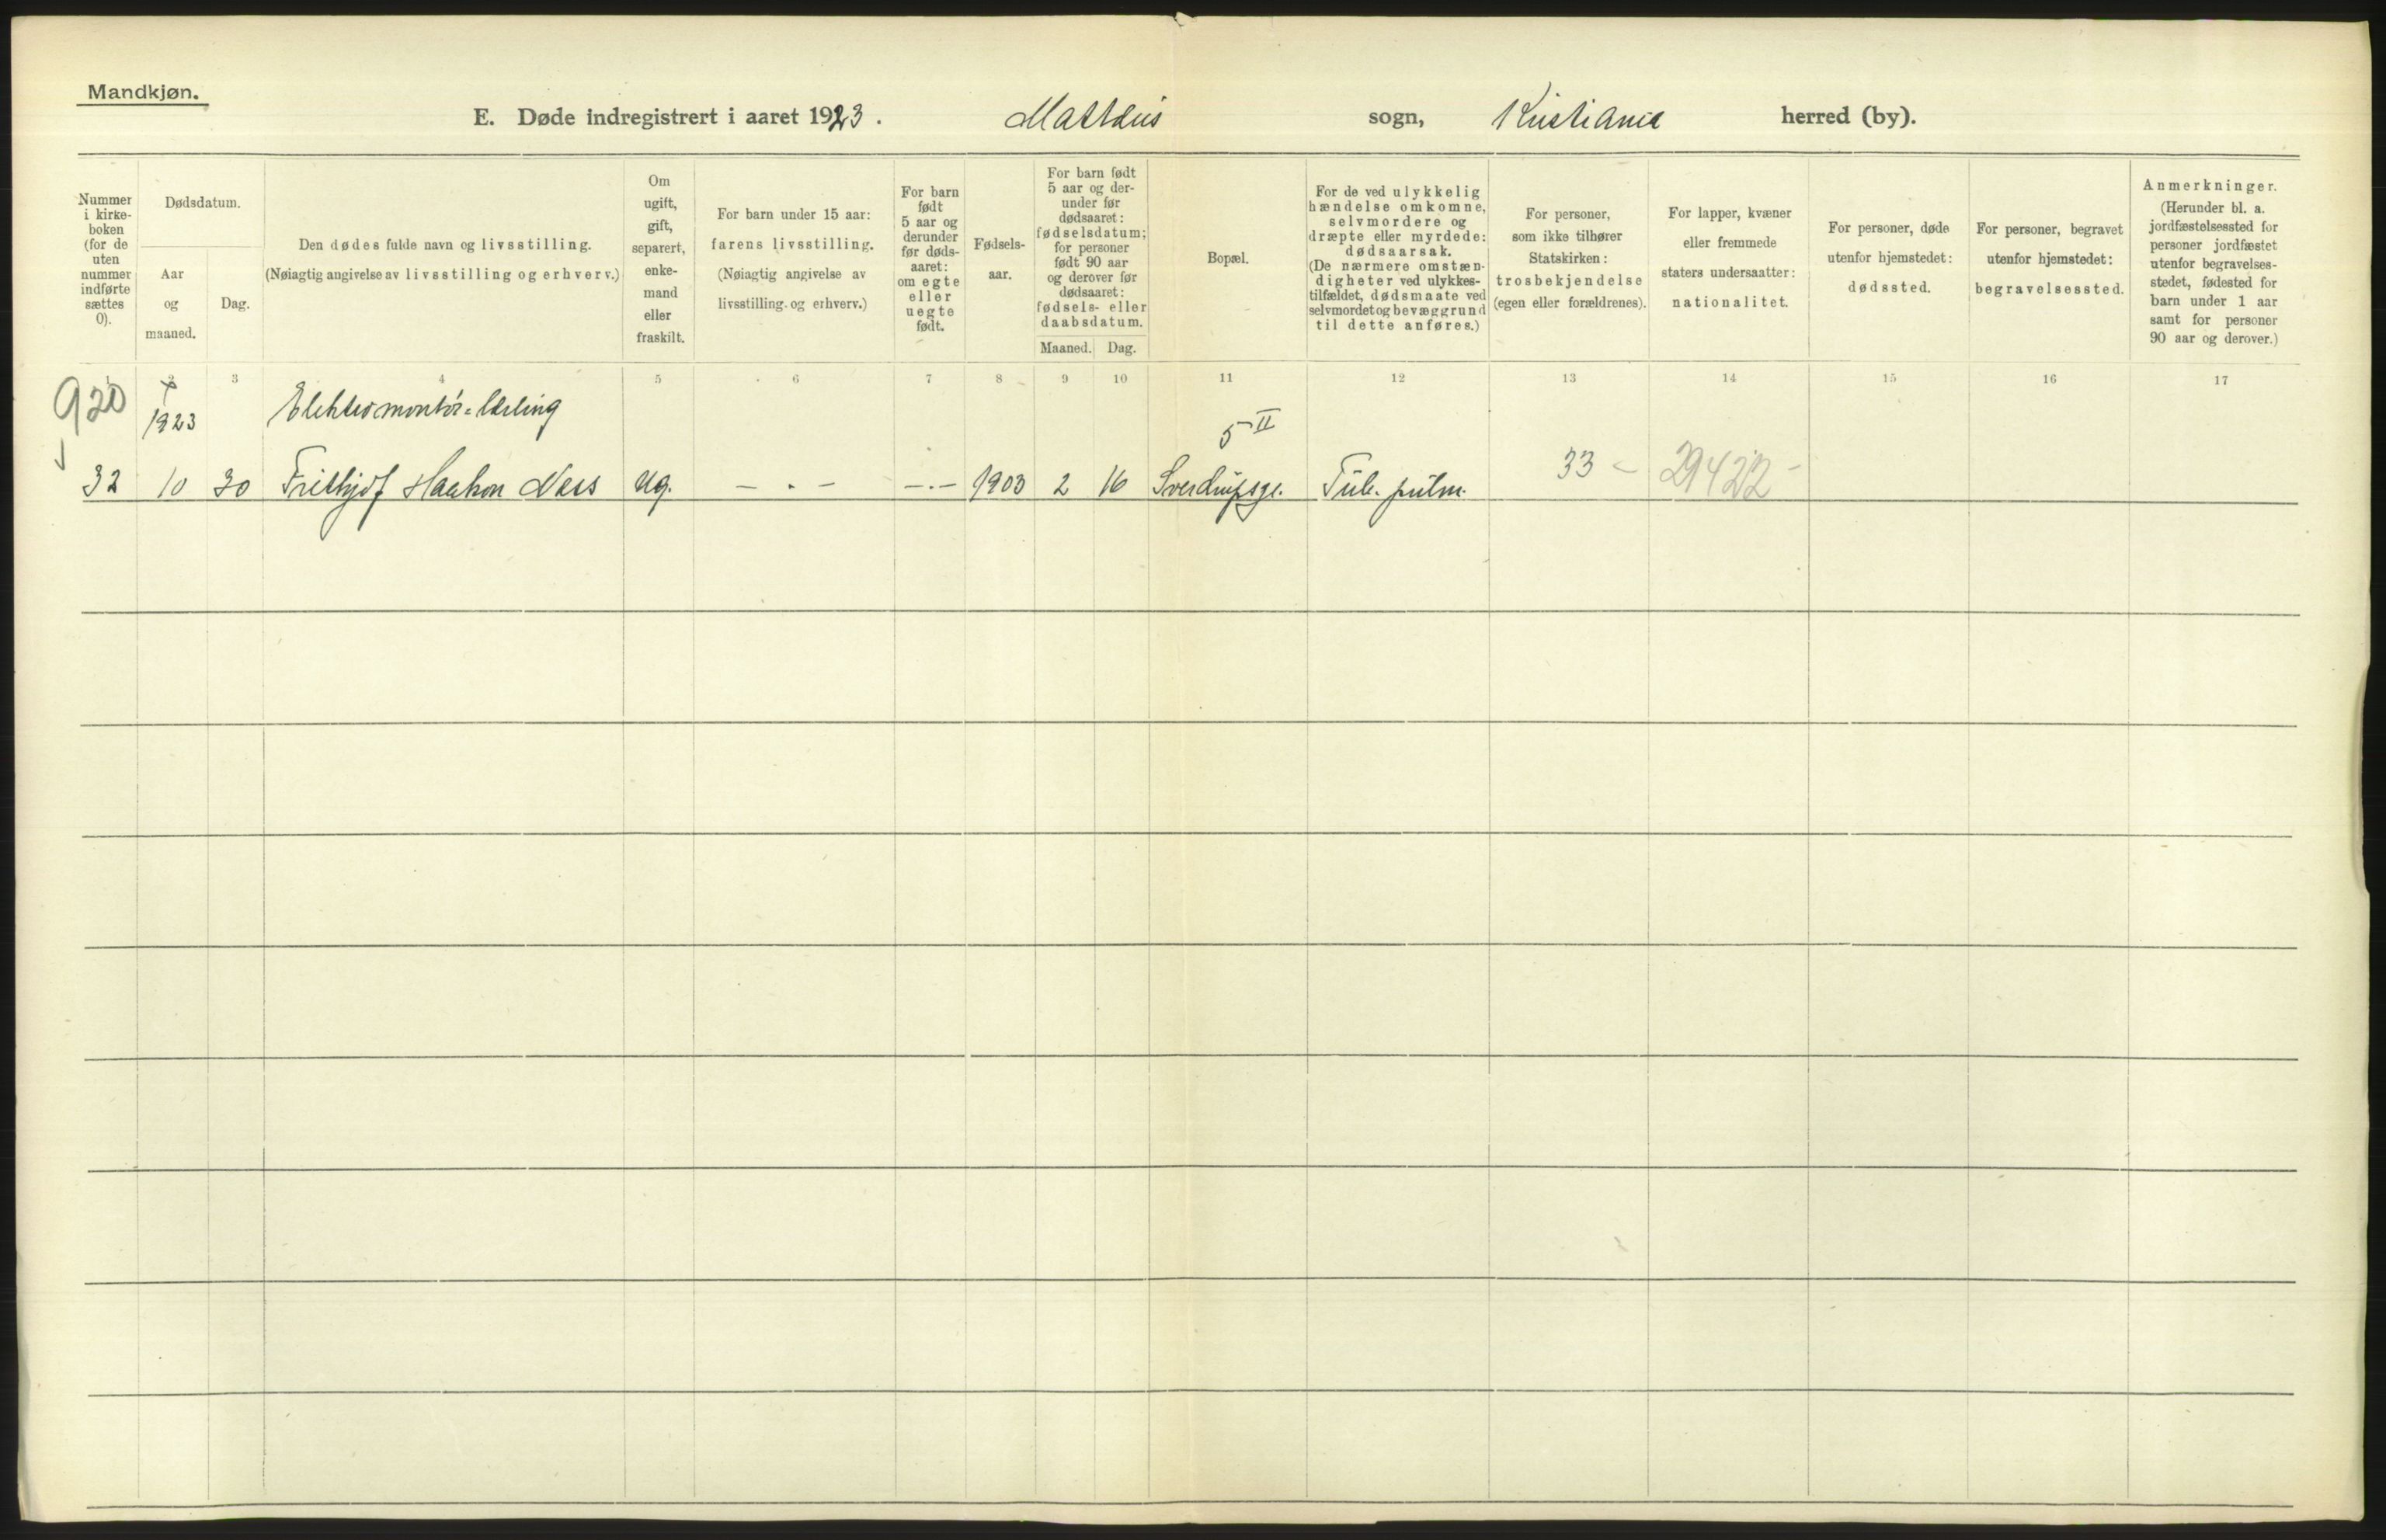 Mandkjøn.
E. Døde indregistrert i aaret 1923. Mattæus sogn, Kristiania herred (by).
Nummer i kirke- boken (for de uten nummer indførte sættes 0).
Dødsdatum.
Aar og maaned.
Dag.
Den dødes fulde navn og livsstilling.
(Nøiagtig angivelse av livsstilling og erhverv.)
Om ugift, gift, separert, enke- mand eller fraskilt.
For barn under 15 aar:
farens livsstilling.
(Nøiagtig angivelse av
livsstilling og erhverv.)
For barn født 5 aar og derunder før døds- aaret: om egte eller uegte født.
Fødsels- aar.
For barn født 5 aar og der- under før dødsaaret: fødselsdatum; for personer født 90 aar og derover før dødsaaret: fødsels- eller daabsdatum.
Maaned. Dag.
Bopæl.
For de ved ulykkelig hændelse omkomne, selvmordere og dræpte eller myrdede: dødsaarsak. (De nærmere omstæn- digheter ved ulykkes- tilfældet, dødsmaate ved selvmordet og bevæggrund til dette anføres.)
For personer, som ikke tilhører Statskirken: trosbekjendelse (egen eller forældrenes).
For lapper, kvæner eller fremmede staters undersaatter: nationalitet.
For personer, døde utenfor hjemstedet: dødssted.
For personer, begravet utenfor hjemstedet: begravelsessted.
Anmerkninger. (Herunder bl. a. jordfæstelsessted for personer jordfæstet utenfor begravelses- stedet, fødested for barn under 1 aar samt for personer 90 aar og derover.)
3 4 5 6 7 8 9 10 11 12 13 14 15 16 17
920 1923 Elektromontør=lærling 5 II
32 10 30 Frithjof Haakon Næss ug. — . — —.— 1903 2 16 Sverdrupsgt. Tub. pulm. 33 - 29422 -